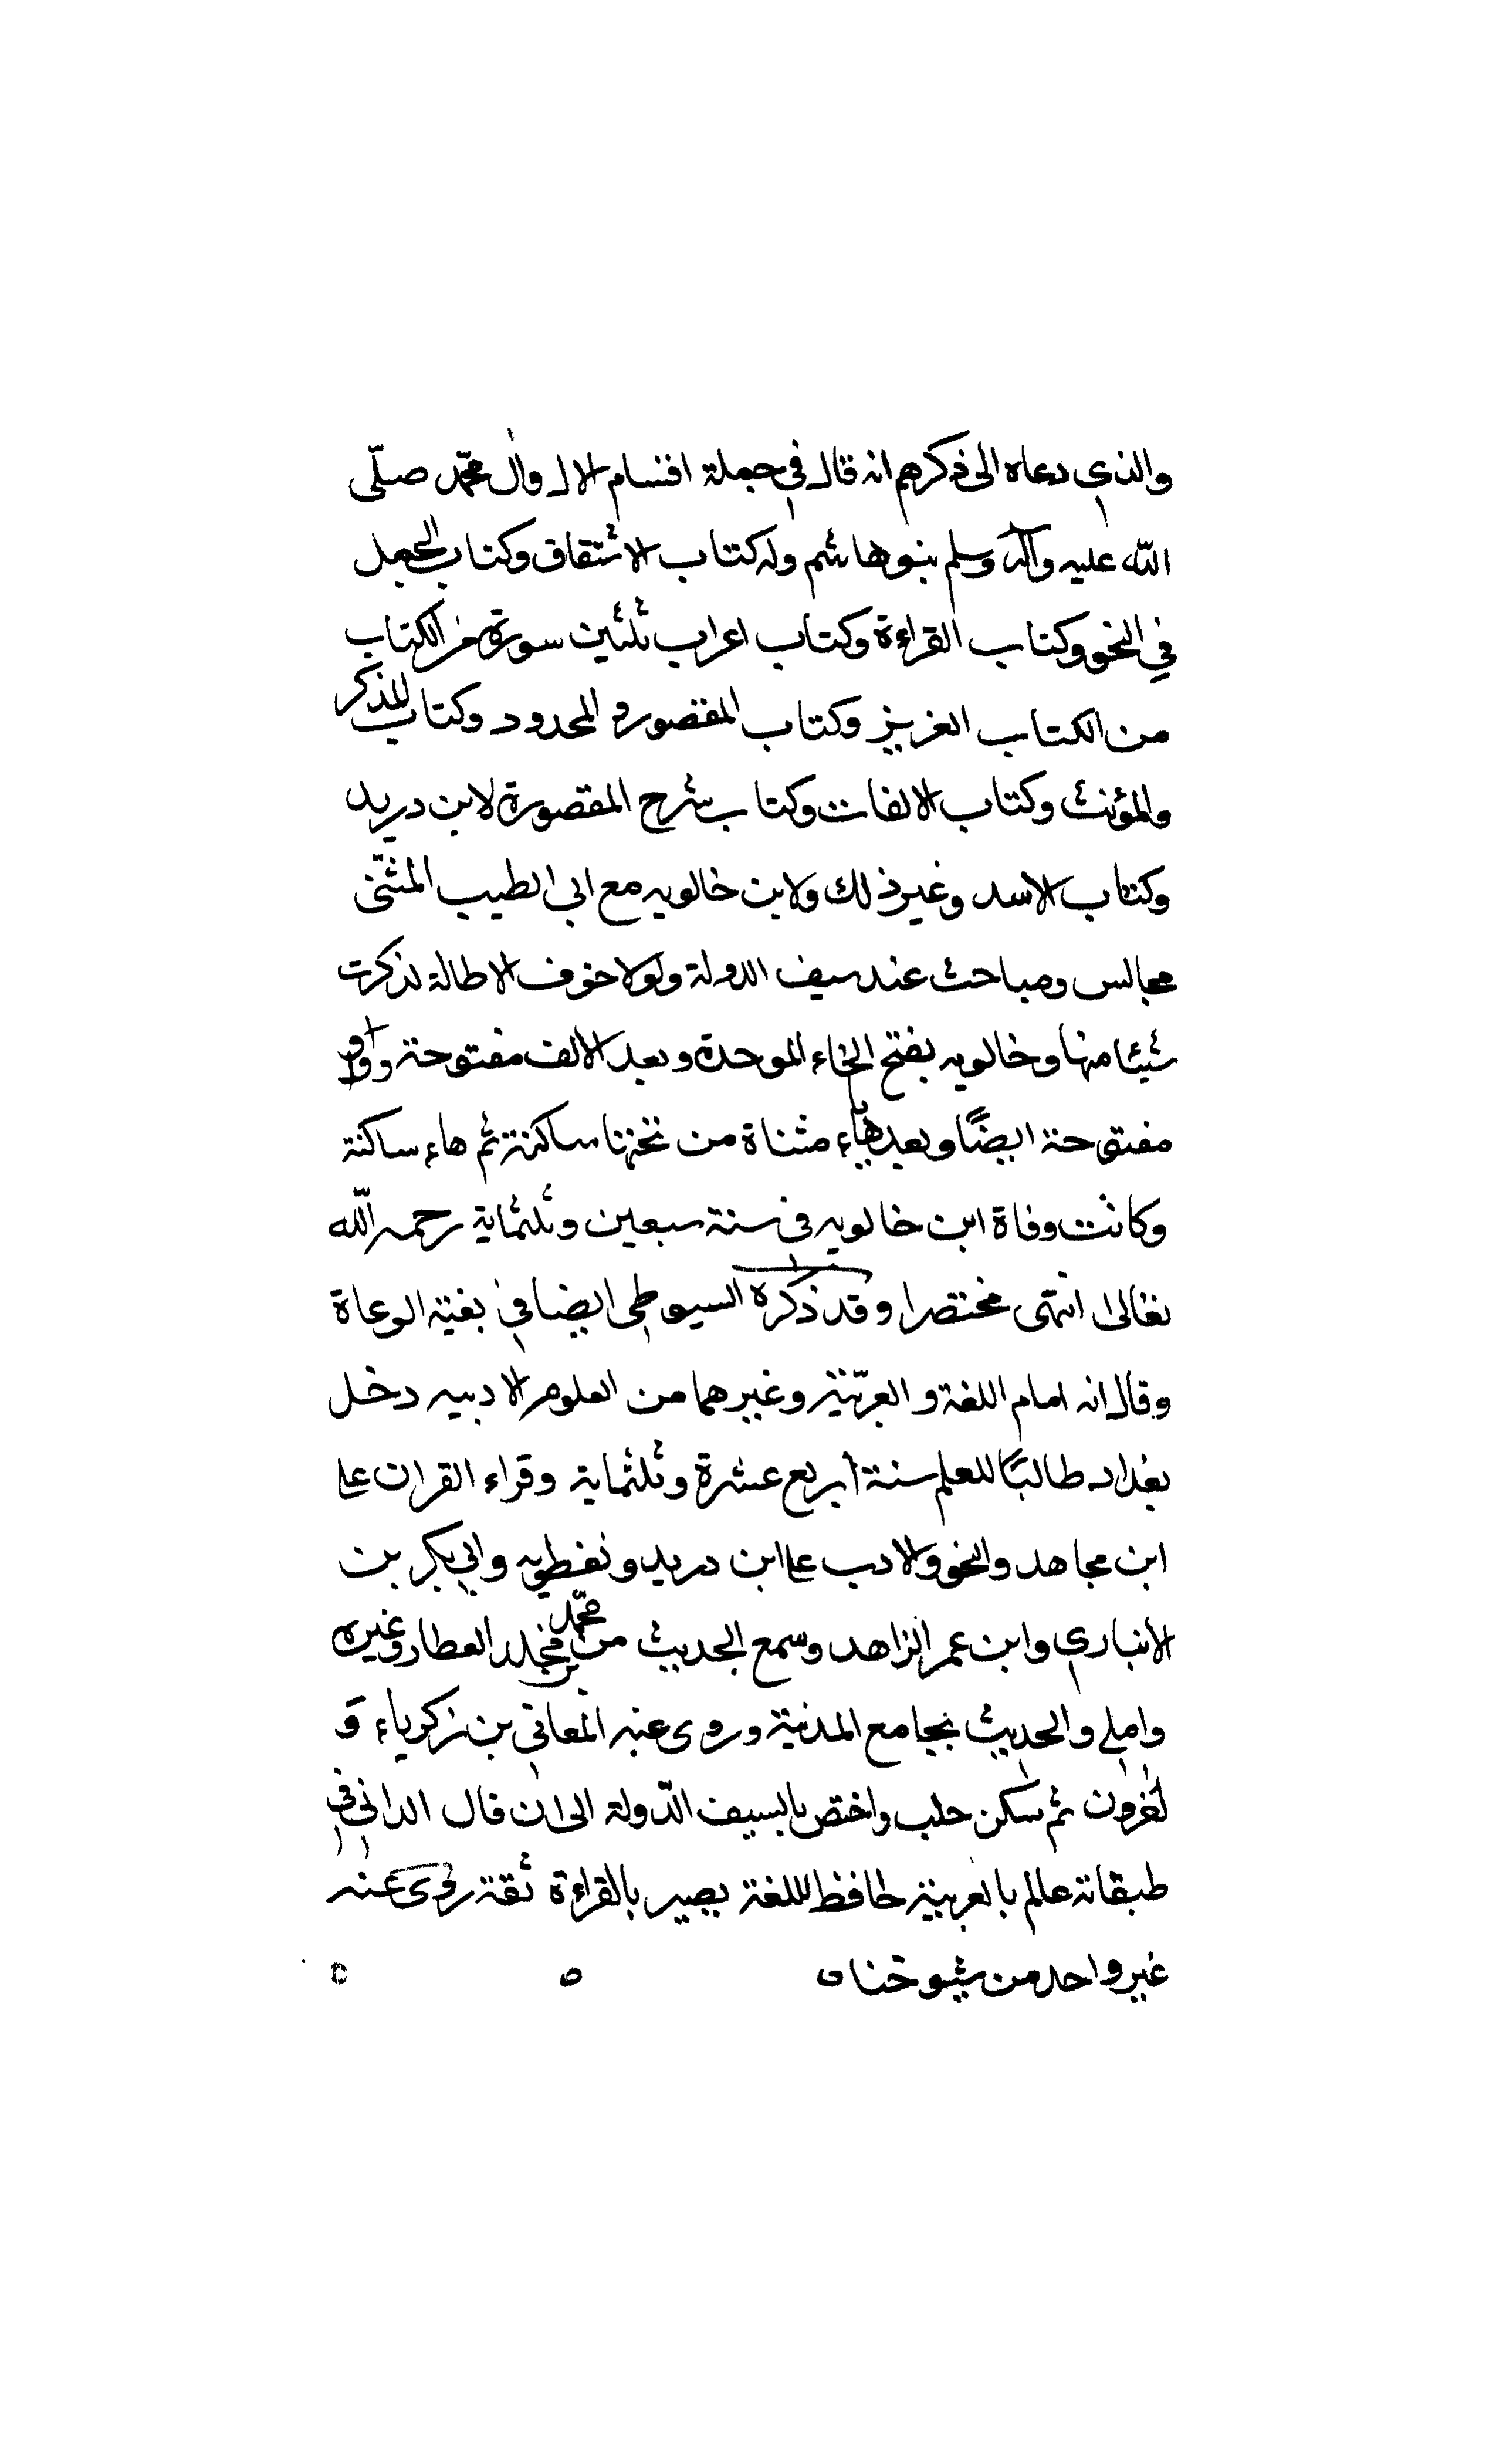 والذي دعاه الى ذكرهم انه قال في جملة اقسام الال وال محمّد صلّى
اللّه عليه وآله وسلم بنوهاشم وله كتاب الاشتقاق وكتاب الجمل
في النحو وكتاب القراءة وكتاب اعراب ثلثين سورة من الكتاب
من الكتاب العزيز وكتاب المقصور والمحدود وكتاب المذكر
والمؤنث وكتاب الالفات وكتاب شرح المقصورة لابن دريد
وكتاب الاسد وغير ذلك ولابن خالويه مع ابي الطيب المثنّى
مجالس ومباحث عند سيف الدولة ولولا خوف الاطالة لذكرت
شيئا منها وخالويه بفتح الخاء الموحدة وبعد الالف مفتوحة وواو
مفتوحة ايضًا وبعدها ياء مثناة من تحتها ساكنة ثم هاء ساكنة
وكانت وفاة ابن خالويه في سنة سبعين وثلثماية رحمه اللّه
تعالى انتهى مختصرا وقد ذكره السيوطي ايضا في بغية الوعاة
وقال انه امام اللغة والعربيّة وغيرهما من العلوم الادبيه دخل
بغداد طالبًا للعلم سنة أربع عشرة وثلثماية وقراء القران على
ابن مجاهد والنحو والادب على ابن دريد ونفطويه وابي بكر بن
الانباري وابن عمر الزاهد وسمع الحديث من محمّد بن مخلد العطار وغيره
واملى والحديث بجامع المدنية وروى عنه المعافي بن زكرياء وَ
لغرون ثم سكن حلب واختص بالسيف الدّولة الى ان قال الداني في
طبقاته عالم بالعربية حافظ للغة بصير بالقراءة ثقة روى عنه
غير واحد من شيوخنا